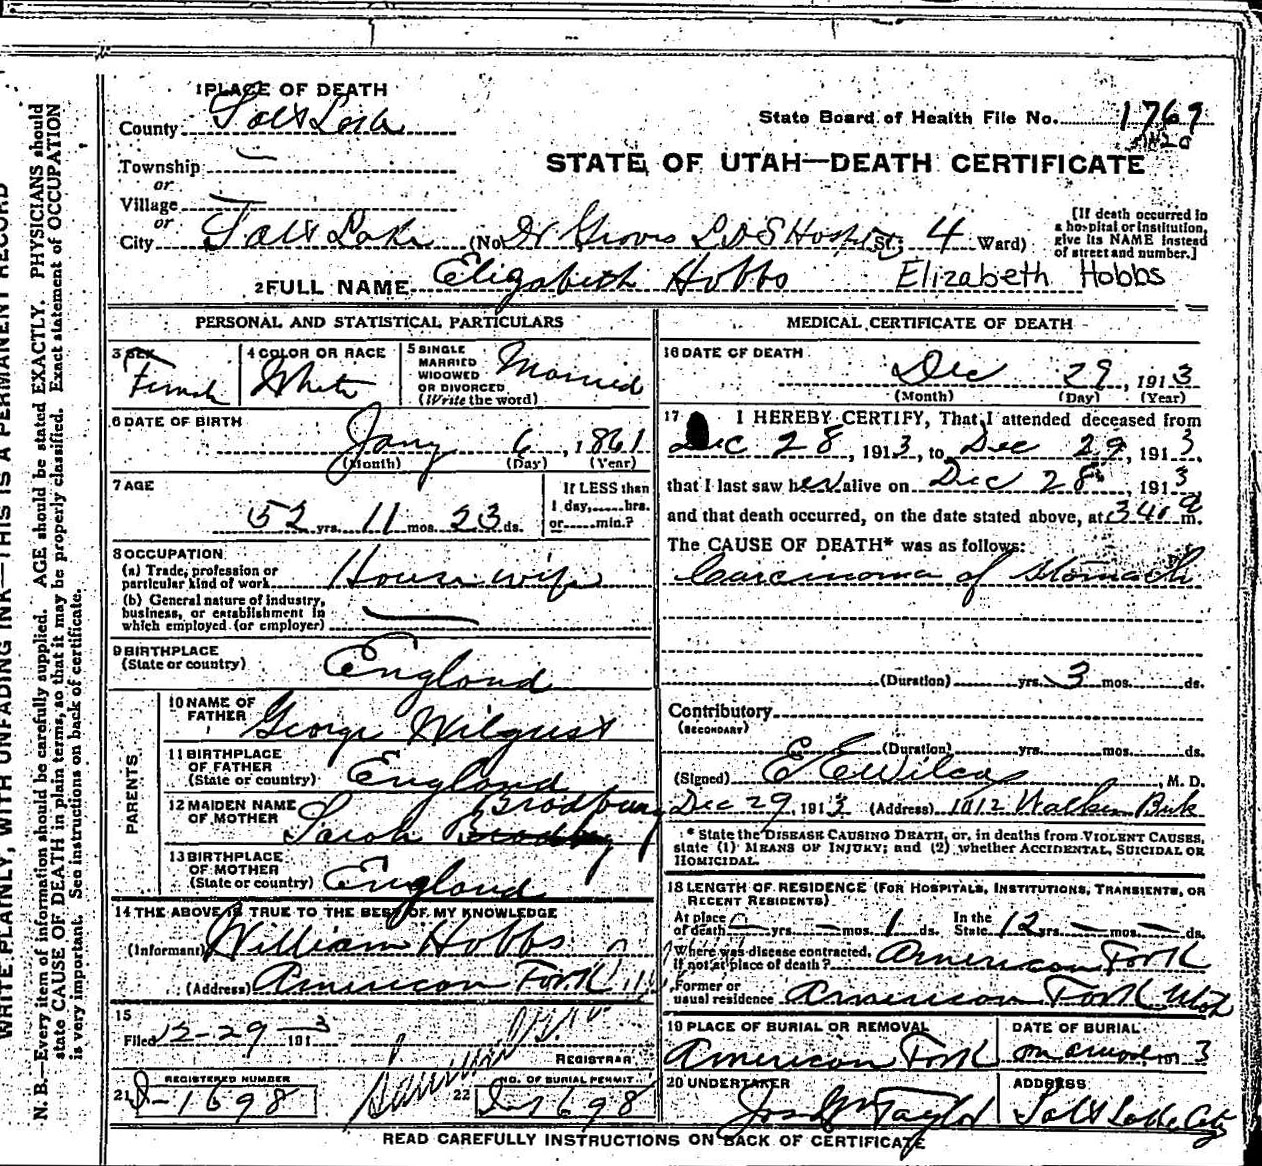 WRITE PLAINLY, WITH UNFADING INK—THIS IS A PERMANENT RECORD
N. B.—Every item of information should be carefully supplied. AGE should be stated EXACTLY. PHYSICIANS should
state CAUSE OF DEATH in plain terms, so that it may be properly classified. Exact statement of OCCUPATION
is very important. See instructions on back of certificate.
1 PLACE OF DEATH
County Salt Lake
State Board of Health File No. 1769
Township —
STATE OF UTAH—DEATH CERTIFICATE
or
Village —
or
City Salt Lake (No Dr Groves L D S Hospital St; 4 Ward)
[If death occurred in
a hospital or institution,
give its NAME instead
of street and number.]
2 FULL NAME Elizabeth Hobbs Elizabeth Hobbs
PERSONAL AND STATISTICAL PARTICULARS
3 SEX
Female
4 COLOR OR RACE
White
5 SINGLE
MARRIED
WIDOWED
OR DIVORCED
(Write the word)
Married
6 DATE OF BIRTH
Jany 6, 1861
(Month) (Day) (Year)
7 AGE
52 yrs. 11 mos. 23 ds.
If LESS than
1 day, hrs.
or min.?
8 OCCUPATION
(a) Trade, profession or
particular kind of work House wife
(b) General nature of industry,
business, or establishment in
which employed (or employer) —
9 BIRTHPLACE
(State or country) England
PARENTS
10 NAME OF
FATHER George Wilgust
11 BIRTHPLACE
OF FATHER
(State or country) England
12 MAIDEN NAME
OF MOTHER Sarah Bradbury
13 BIRTHPLACE
OF MOTHER
(State or country) England
14 THE ABOVE IS TRUE TO THE BEST OF MY KNOWLEDGE
(Informant) William Hobbs
(Address) American Fork
15
Filed 12-29-3 191
REGISTRAR
REGISTERED NUMBER
21 D-1698
NO. OF BURIAL PERMIT
22 D-1698
MEDICAL CERTIFICATE OF DEATH
16 DATE OF DEATH
Dec 29, 1913
(Month) (Day) (Year)
17 I HEREBY CERTIFY, That I attended deceased from
Dec 28, 1913, to Dec 29, 1913.
that I last saw her alive on Dec 28, 1913
and that death occurred, on the date stated above, at 340 a m.
The CAUSE OF DEATH* was as follows:
Carcinoma of Stomach
(Duration) yrs. 3 mos. ds.
Contributory
(SECONDARY)
(Duration) yrs. mos. ds.
(Signed) E E Wilcox, M. D.
Dec 29, 1913 (Address) 1012 Walker Bnk
* State the DISEASE CAUSING DEATH, or, in deaths from VIOLENT CAUSES,
state (1) MEANS OF INJURY; and (2) whether ACCIDENTAL, SUICIDAL OR
HOMICIDAL.
18 LENGTH OF RESIDENCE (FOR HOSPITALS, INSTITUTIONS, TRANSIENTS, OR
RECENT RESIDENTS)
At place
of death — yrs. — mos. 1 ds. In the
State 12 yrs. — mos. — ds.
Where was disease contracted,
If not at place of death? American Fork
Former or
usual residence American Fork Utah
19 PLACE OF BURIAL OR REMOVAL
American Fork
DATE OF BURIAL
on arrival 191 3
20 UNDERTAKER
Jos Wm Taylor
ADDRESS
Salt Lake City
READ CAREFULLY INSTRUCTIONS ON BACK OF CERTIFICATE